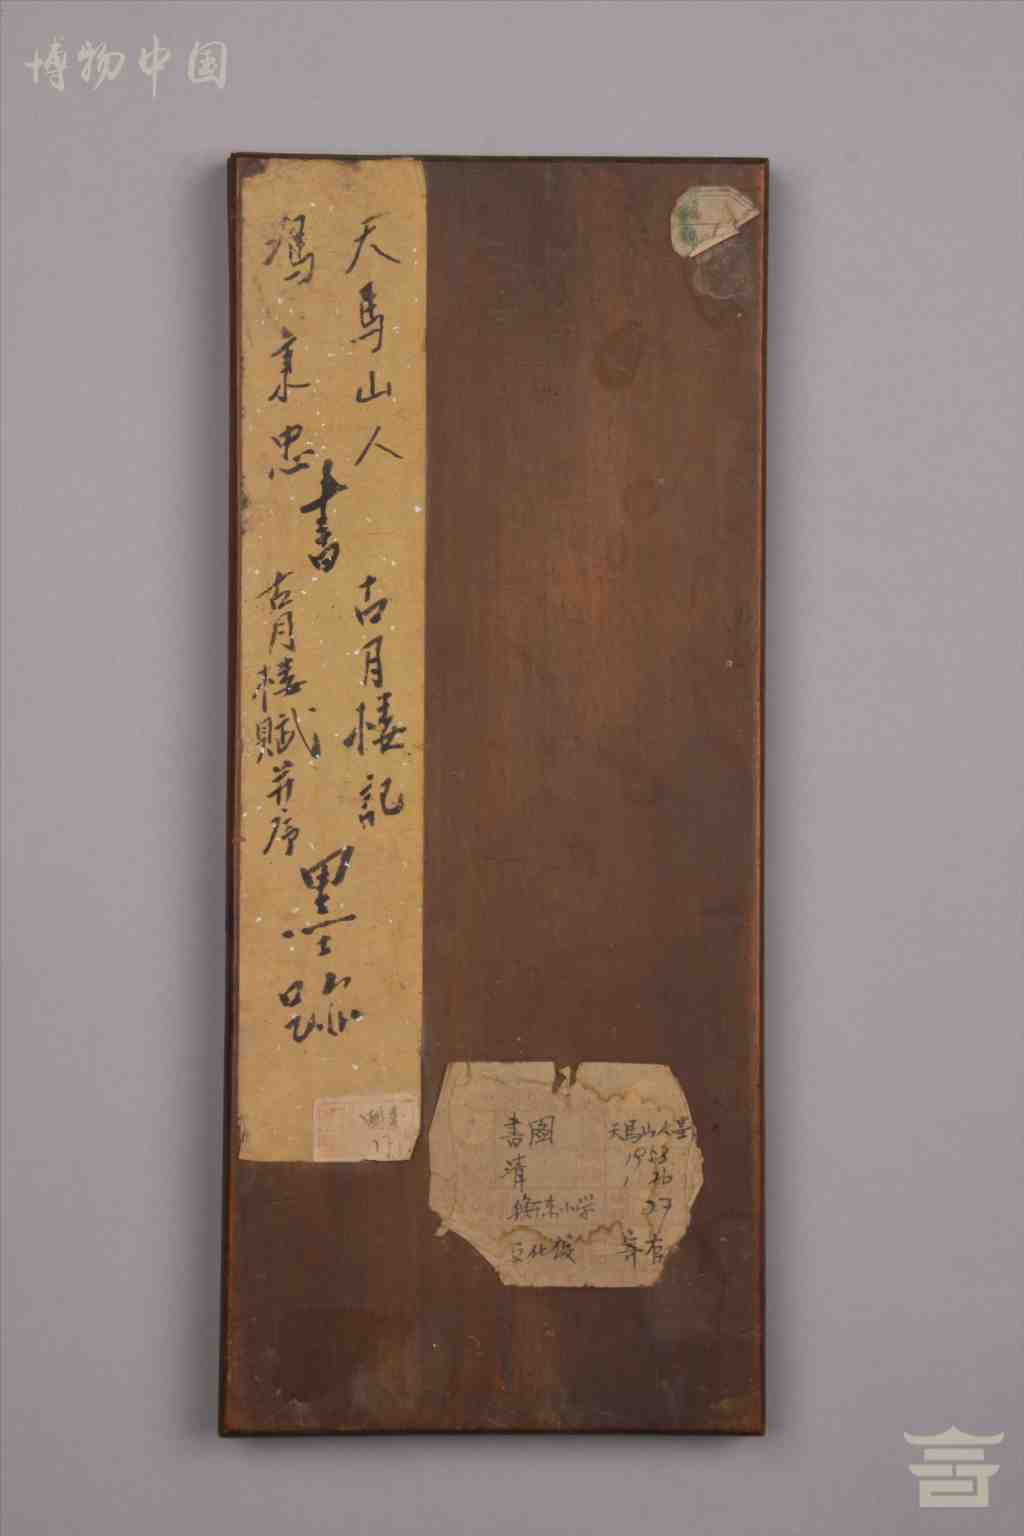 博物中国
天馬山人
馮秉忠
書
古月楼記
古月楼賦并序
墨跡
書 圖
清
天馬山人墨
1953
1 26
小学
27
寄存